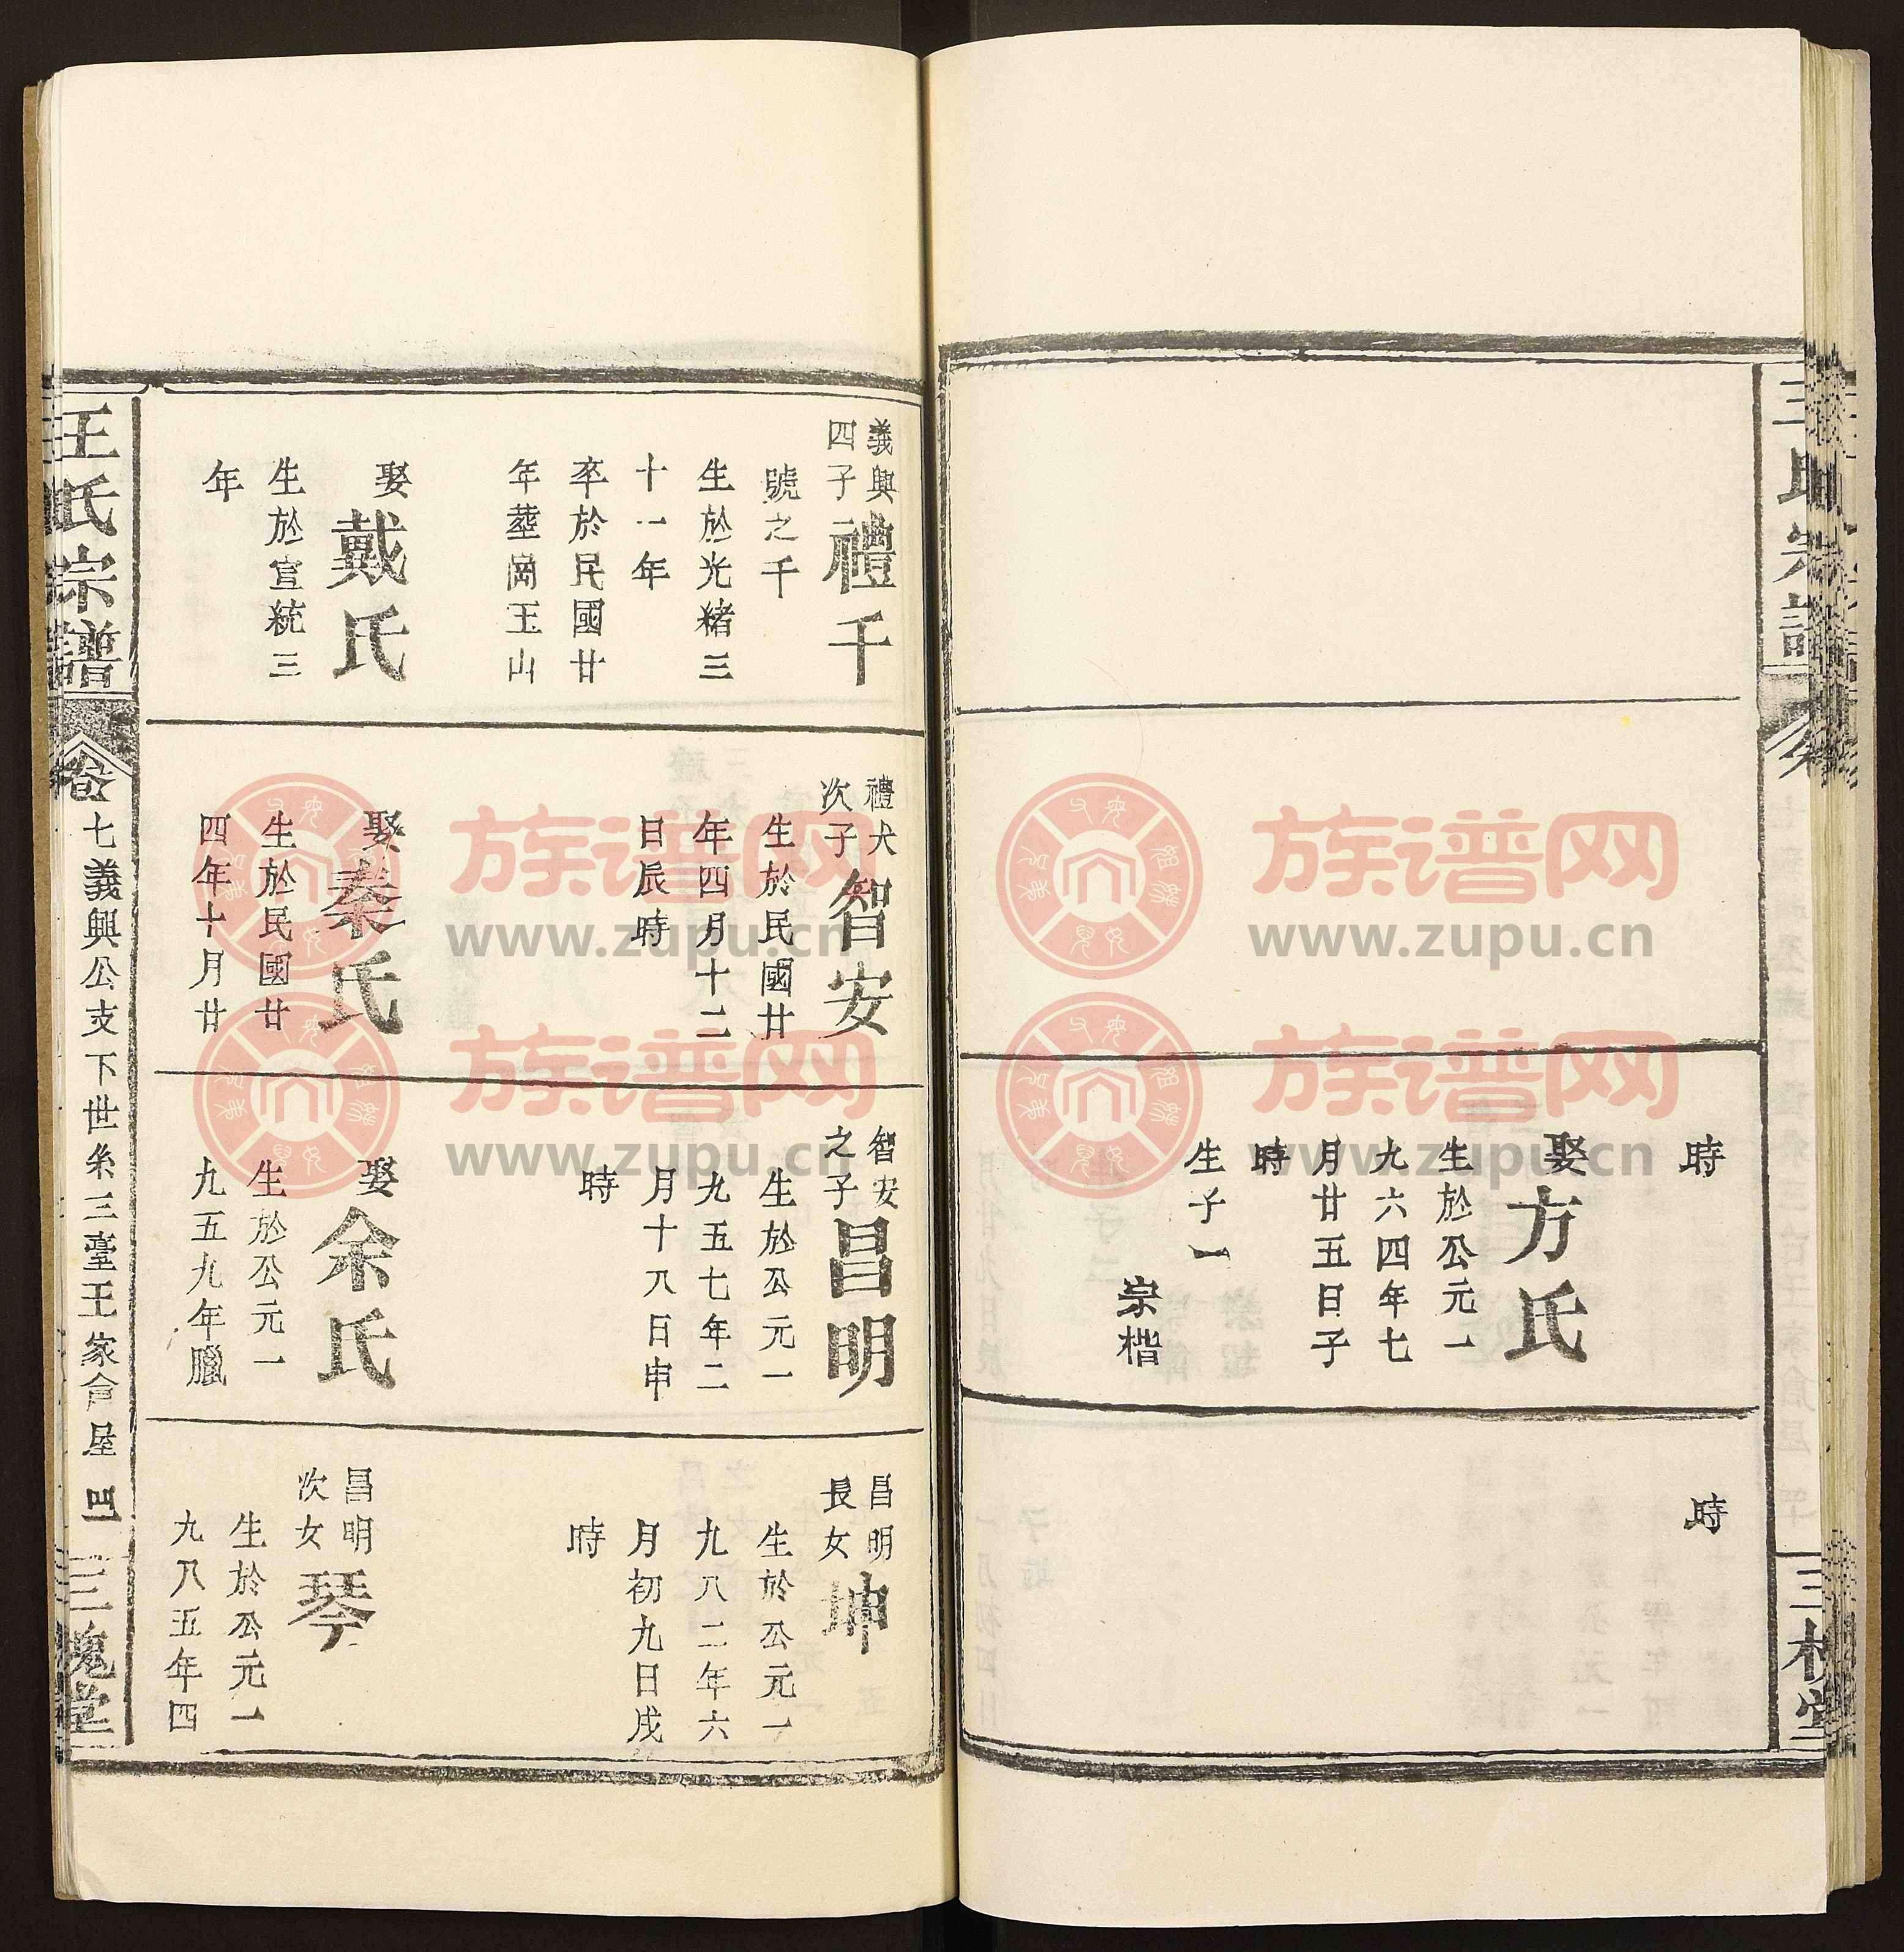 時
娶方氏
生於公元一
九六四年七
月廿五日子
時
生子一
崇楷
時
三槐堂
義興
四子
禮千
號之千
生於光緒三
十一年
卒於民國廿
年塟岡玉山
娶戴氏
生於宣統三
年
禮犬
次子
智安
生於民國廿
年四月十二
日辰時
娶秦氏
生於民國廿
四年十月廿
智安
之子
昌明
生於公元一
九五七年二
月十八日申
時
娶余氏
生於公元一
九五九年臘
昌明
長女
坤
生於公元一
九八二年六
月初九日戌
時
昌明
次女
琴
生於公元一
九八五年四
王氏宗譜
卷七義興公支下世糸三臺王家會屋 四
三槐堂
族谱网
www.zupu.cn
族谱网
www.zupu.cn
族谱网
www.zupu.cn
族谱网
www.zupu.cn